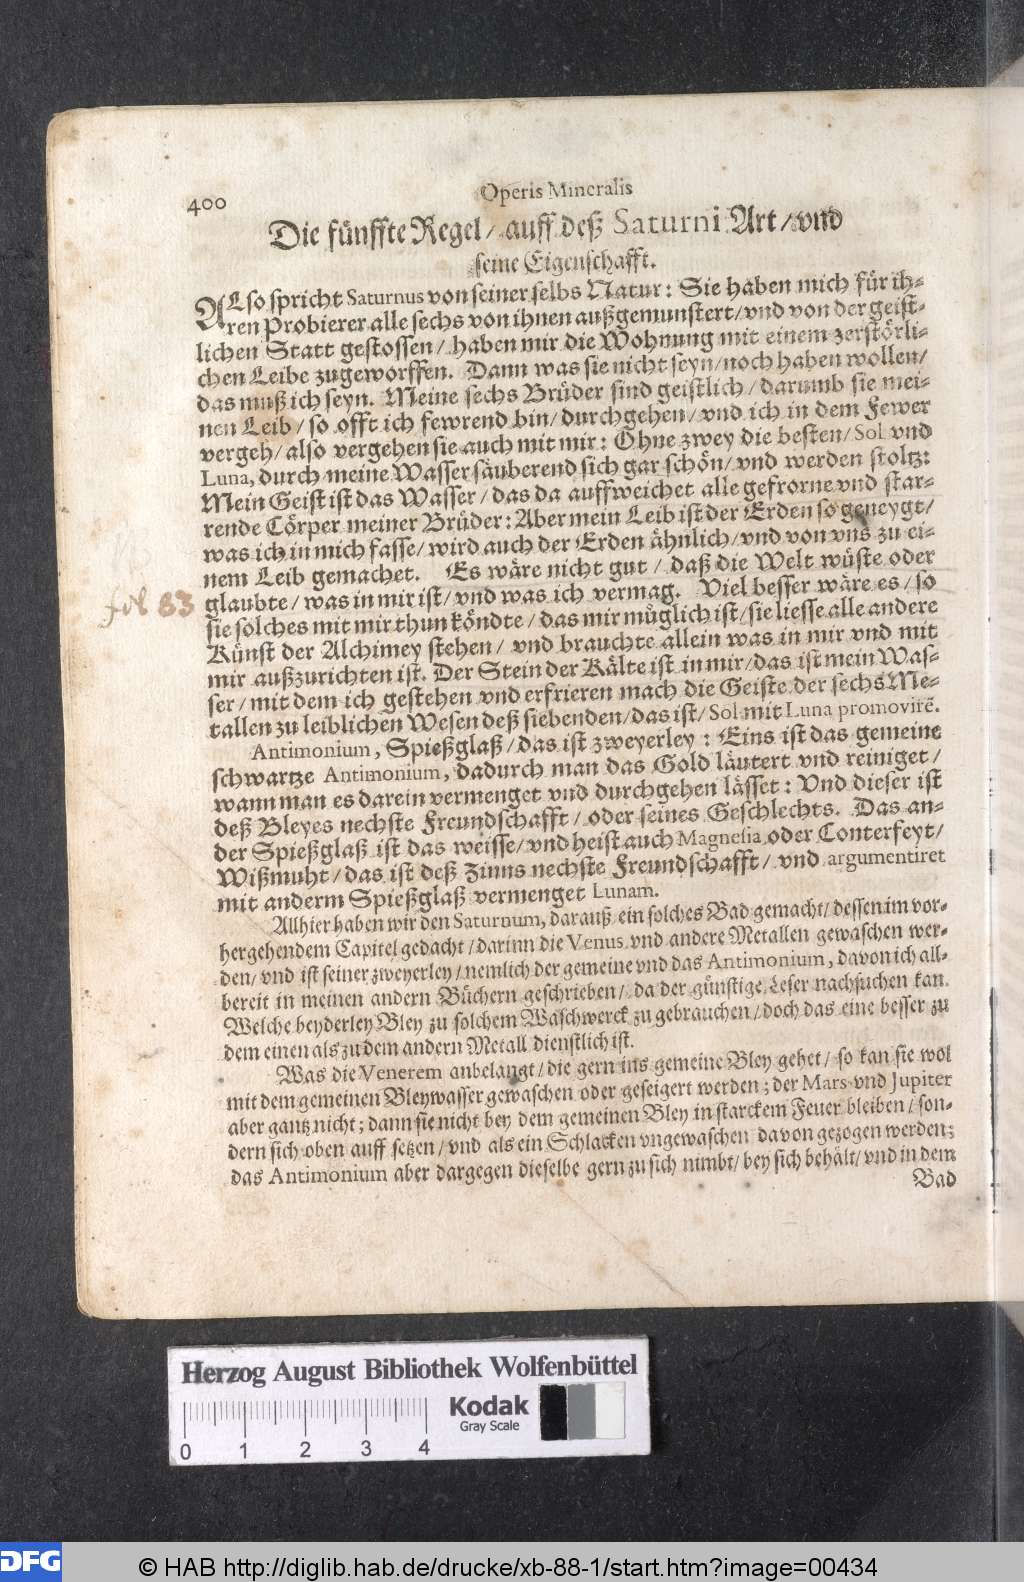 400
Operis Mineralis
Die fünffte Regel / auff deß Saturni Art / vnd
seine Eigenschafft.
ALso spricht Saturnus von seiner selbs Natur: Sie haben mich für ih-
ren Probierer alle sechs von ihnen außgemunstert / vnd von der geist-
lichen Statt gestossen / haben mir die Wohnung mit einem zerstörli-
chen Leibe zugeworffen. Dann was sie nicht seyn / noch haben wollen /
das muß ich seyn. Meine sechs Brüder sind geistlich / darumb sie mei-
nen Leib / so offt ich fewrend bin / durchgehen / vnd ich in dem Fewer
vergeh / also vergehen sie auch mit mir: Ohne zwey die besten / Sol vnd
Luna, durch meine Wasser säuberend sich gar schön / vnd werden stoltz:
Mein Geist ist das Wasser / das da auffweichet alle gefrorne vnd star-
rende Cörper meiner Brüder: Aber mein Leib ist der Erden so geneygt /
was ich in mich fasse / wird auch der Erden ähnlich / vnd von vns zu ei-
nem Leib gemachet. Es wäre nicht gut / daß die Welt wüste oder
glaubte / was in mir ist / vnd was ich vermag. Viel besser wäre es / so
fol 83
sie solches mit mir thun köndte / das mir müglich ist / sie liesse alle andere
Künst der Alchimey stehen / vnd brauchte allein was in mir vnd mit
mir außzurichten ist. Der Stein der Kälte ist in mir / das ist mein Was-
ser / mit dem ich gestehen vnd erfrieren mach die Geiste der sechs Me-
tallen zu leiblichen Wesen deß siebenden / das ist / Sol mit Luna promovirē.
Antimonium, Spießglaß / das ist zweyerley: Eins ist das gemeine
schwartze Antimonium, dadurch man das Gold läutert vnd reiniget /
wann man es darein vermenget vnd durchgehen lässet: Vnd dieser ist
deß Bleyes nechste Freundschafft / oder seines Geschlechts. Das an-
der Spießglaß ist das weisse / vnd heist auch Magnesia oder Conterfeyt /
Wißmuht / das ist deß Zinns nechste Freundschafft / vnd argumentiret
mit anderm Spießglaß vermenget Lunam.
Allhier haben wir den Saturnum, darauß ein solches Bad gemacht / dessen im vor-
hergehendem Capitel gedacht / darinn die Venus vnd andere Metallen gewaschen wer-
den / vnd ist seiner zweyerley / nemlich der gemeine vnd das Antimonium, davon ich all-
bereit in meinen andern Büchern geschrieben / da der günstige Leser nachsuchen kan.
Welche beyderley Bley zu solchem Waschwerck zu gebrauchen / doch das eine besser zu
dem einen als zu dem andern Metall dienstlich ist.
Was die Venerem anbelangt / die gern ins gemeine Bley gehet / so kan sie wol
mit dem gemeinen Bleywasser gewaschen oder geseigert werden; der Mars vnd Jupiter
aber gantz nicht; dann sie nicht bey dem gemeinen Bley in starckem Feuer bleiben / son-
dern sich oben auff setzen / vnd als ein Schlacken vngewaschen davon gezogen werden;
das Antimonium aber dargegen dieselbe gern zu sich nimbt / bey sich behält / vnd in dem
Bad
Herzog August Bibliothek Wolfenbüttel
Kodak
Gray Scale
0 1 2 3 4
DFG
© HAB http://diglib.hab.de/drucke/xb-88-1/start.htm?image=00434